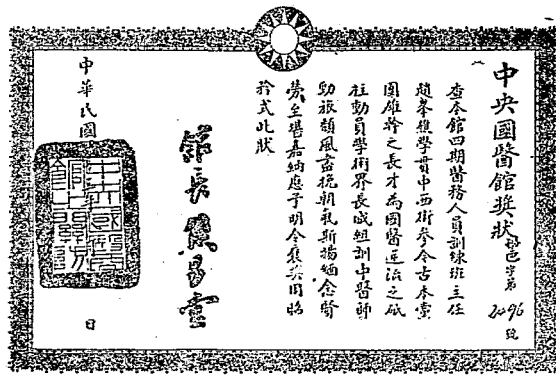 中央國醫館獎狀
字第2496號
查本館四期醫務人員訓練班主任
趙峯樵學貫中西術參今古本黨
國雄幹之長才為國醫 治之砥
柱動員學術界長成組訓中醫師
勁旅頹風盡挽朝氣斯揚緬念賢
勞至堪嘉納應予明令褒獎用昭
矜式此狀
館長焦易堂
中華民國
日